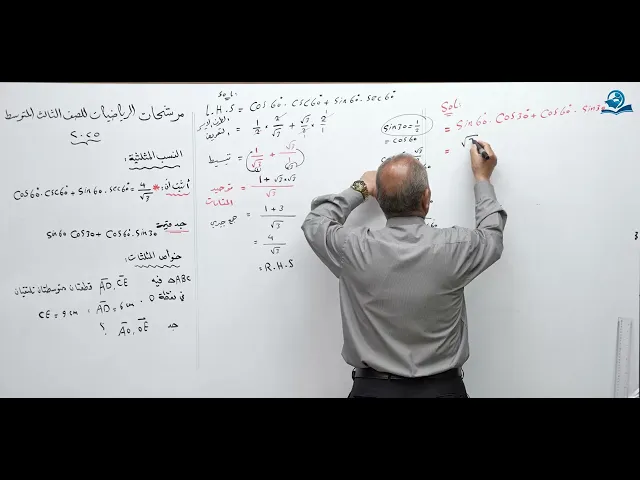 مرشحات الرياضيات للصف الثالث المتوسط
٢٠٢٥
النسب المثلثية:
* أثبت أن: Cos60°. CSC60° + Sin60°. sec60° = 4/√3
جد قيمة Sin60 Cos30 + Cos60°. Sin30
خواص المثلثات:
ABC△ فيه AD, CE قطعتان متوسطتان تلتقيان
في نقطة O، AD = 6cm، CE = 9cm
جد AO, OE ؟
Sol:
L.H.S = Cos60°. CSC60° + Sin60°. sec60°
الطرف الأيسر
= 1/2 × 2/√3 + √3/2 × 2/1
تبسيط = 1/√3 + √3/1
توحيد المقامات = 1 + √3×√3 / √3
جمع جذري = 1+3 / √3
= 4/√3
= R.H.S
Sin30 = 1/2
= Cos60
Sol:
= Sin60°. Cos30° + Cos60°. Sin30
= √3